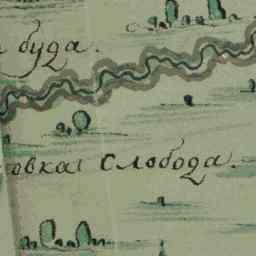 буда.
овка слобода.